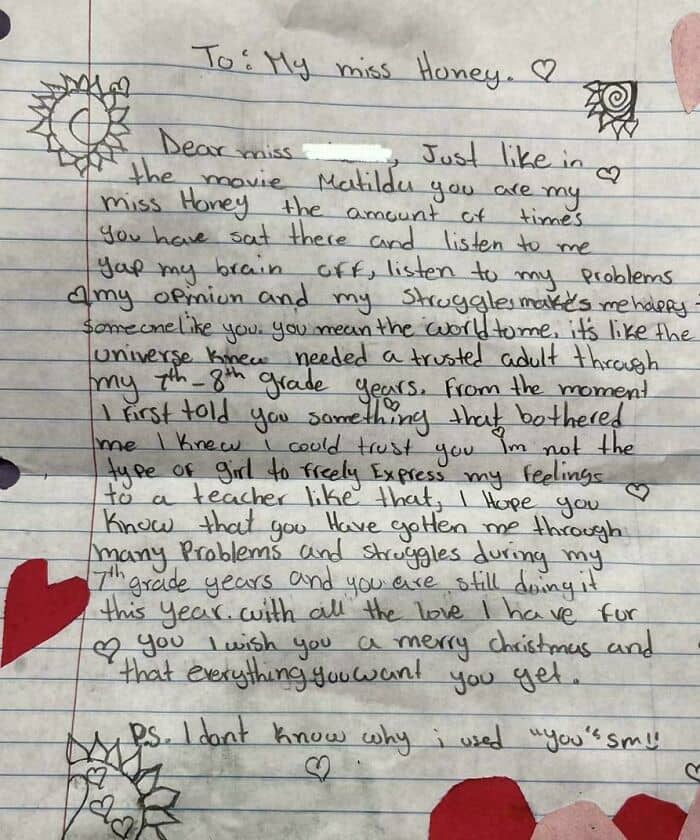 To: My miss Honey.
Dear miss , Just like in
the movie Matilda you are my
miss Honey the amount of times
you have sat there and listen to me
yap my brain off, listen to my problems
my opmion and my struggles makes me happy
someone like you. you mean the world to me. it's like the
universe knew needed a trusted adult through
my 7th - 8th grade years. From the moment
I first told you something that bothered
me I knew I could trust you Im not the
type of girl to freely Express my feelings
to a teacher like that, I Hope you
know that you Have gotten me through
many Problems and struggles during my
7th grade years and you are still doing it
this year. with all the love I have for
you I wish you a merry christmas and
that everything you want you get.
Ps. I dont know why i used "you" sm!!